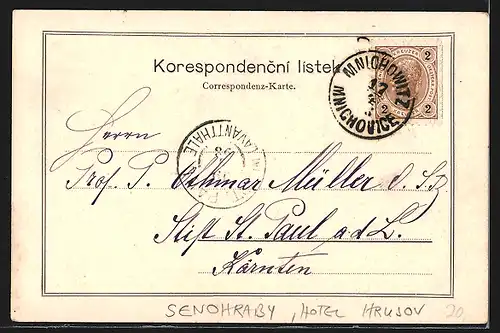 Korespondenční lístek
Correspondenz-Karte.
2 KREUZER 2
2 2
MNICHOWITZ
MNICHOVICE
Herrn
Prof. P. Othmar Müller O. S. B.
LAVANTHALE
98
Stift St. Paul a. d. L.
Kärnten
SENOHRABY, HOTEL HRUSOV 20